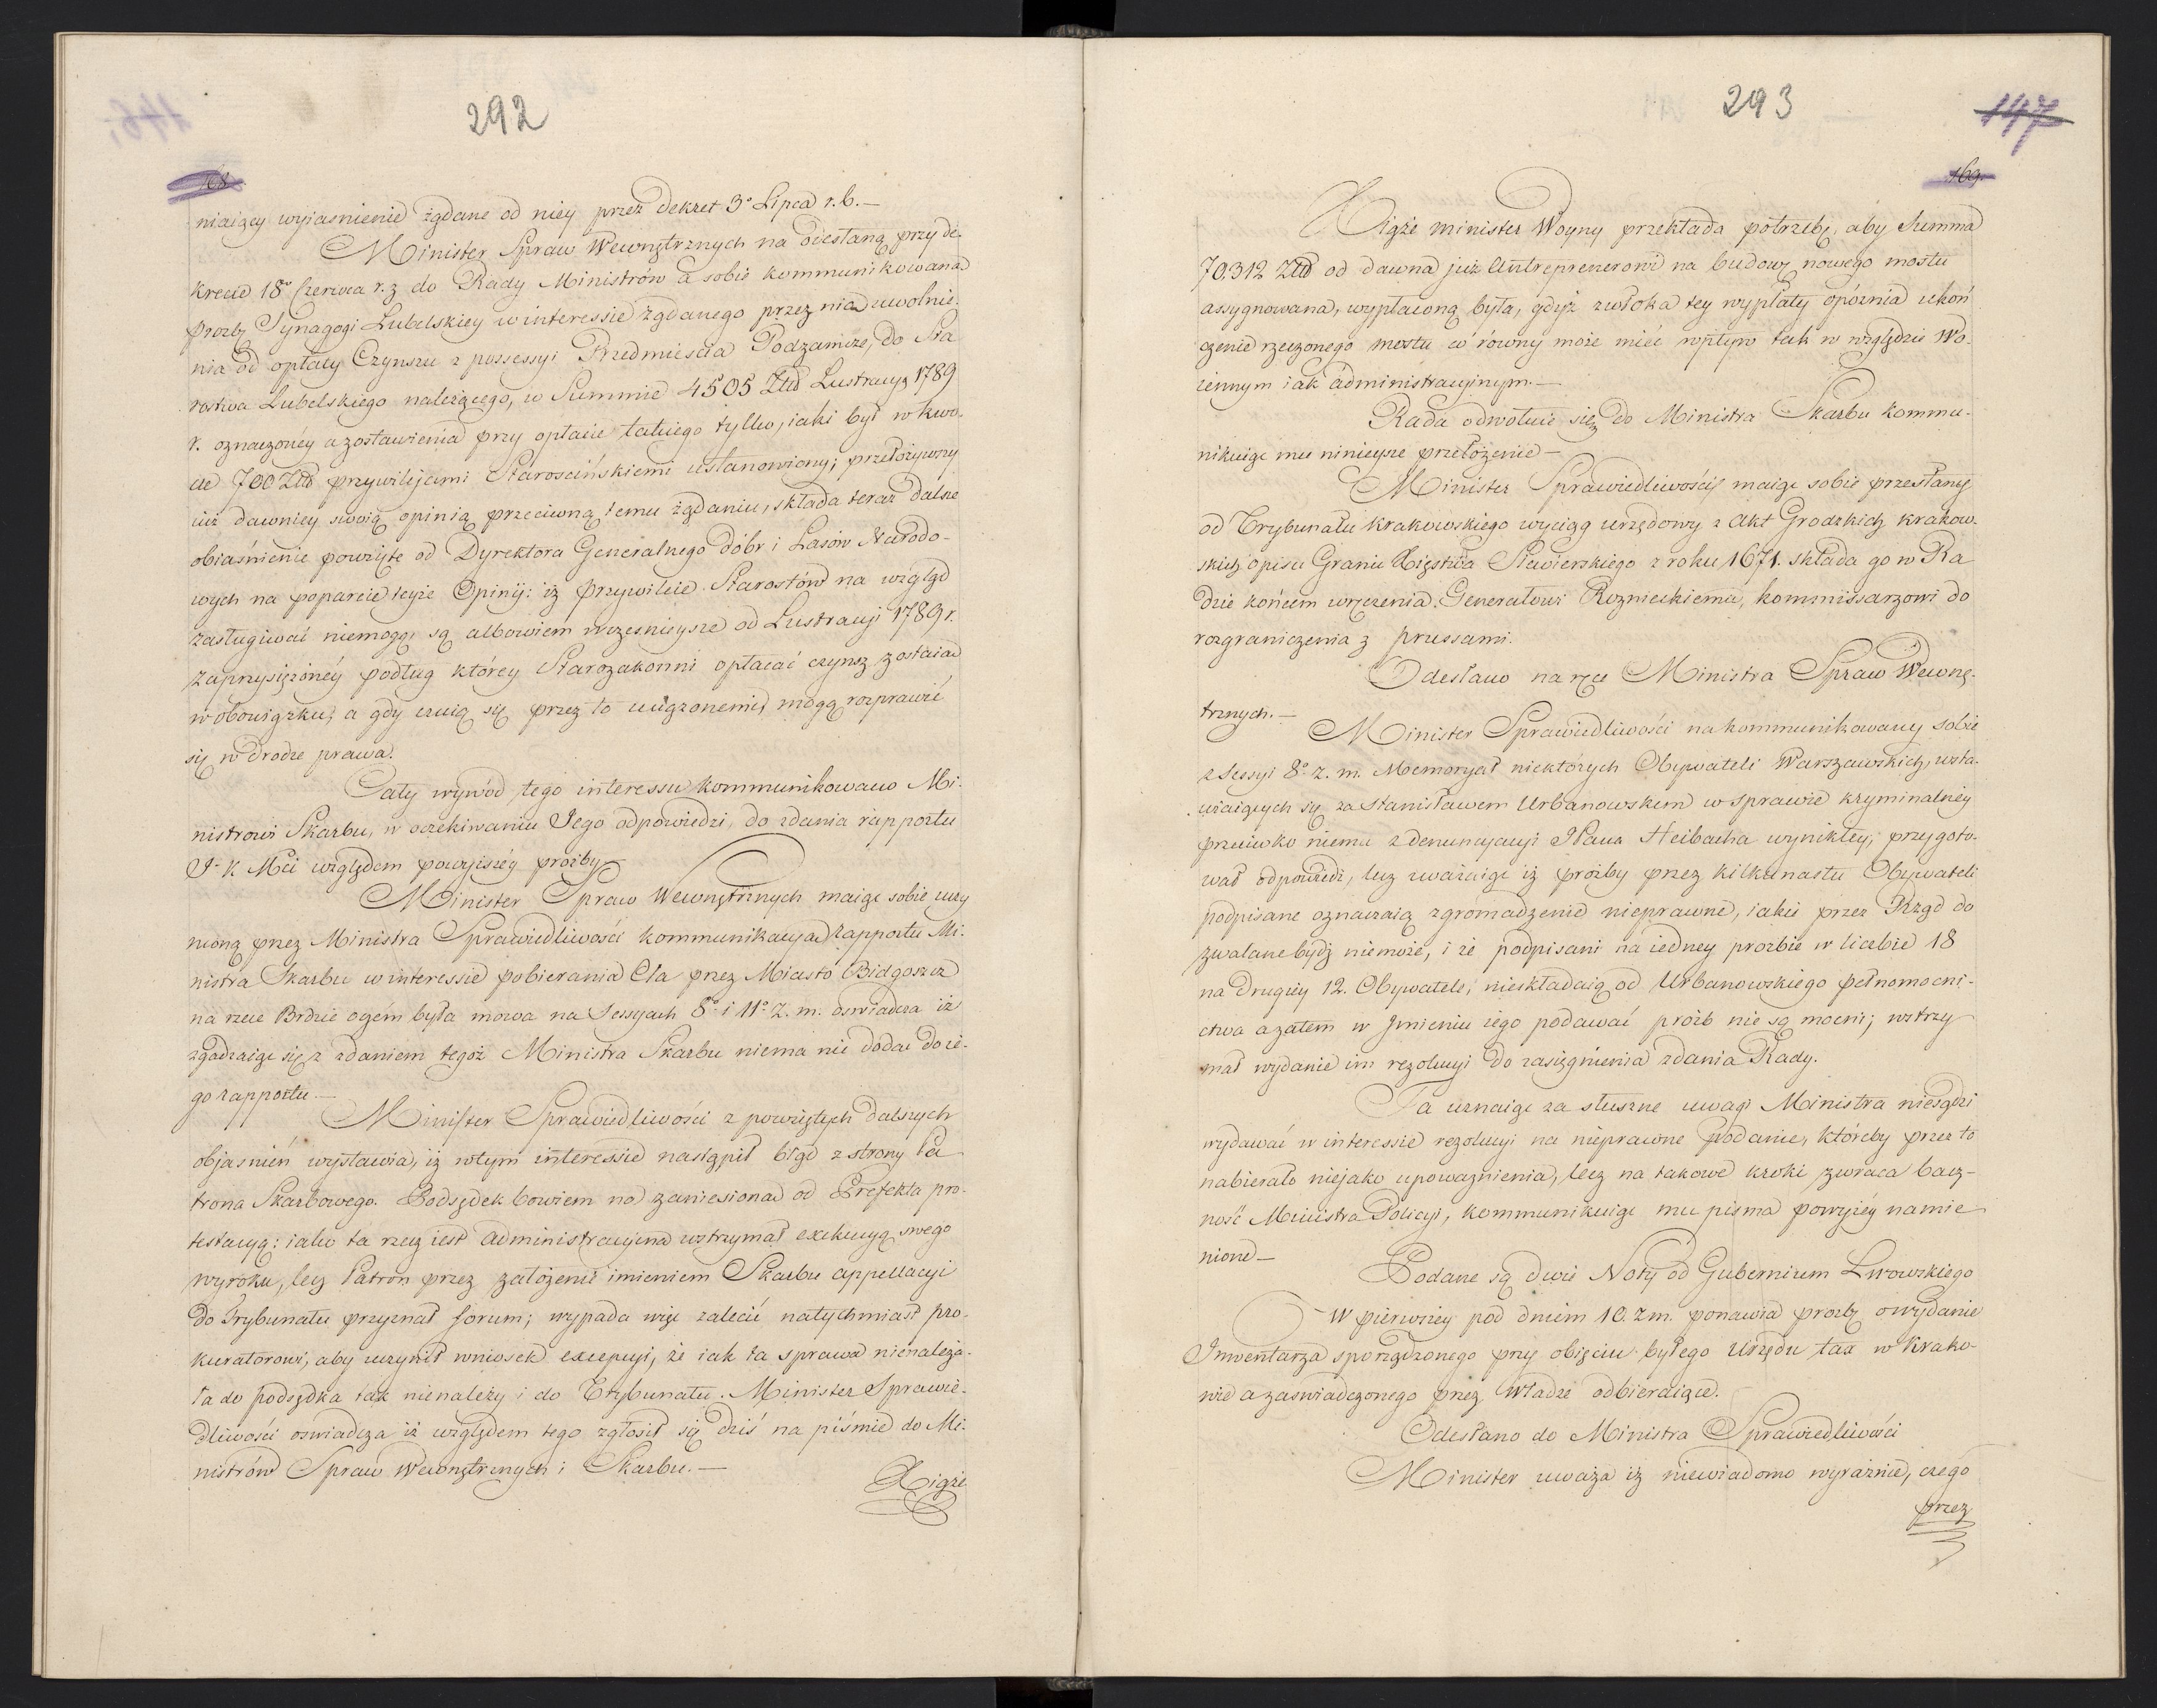 292
168
niaiący wyiasnienie żądane od niey przez dekret 3° Lipca r. b. —
Minister Spraw Wewnętrznych na odesłaną przy de-
krecie 18° Czerwca r. z. do Rady Ministrów a sobie kommunikowaną
prozbę Synagogi Lubelskiey w interessie żądanego przez nią uwolnie-
nia od opłaty Czynszu z possessyi Przedmieścia Podzamcze, do Sta
rostwa Lubelskiego należącego, w Summie 4505 Złł Lustracyą 1789
r. oznaczonéy a zostawienia przy opłacie takiego tylko, iaki był w kwo-
cie 700 Złł przywilejami Starościńskiemi ustanowiony; przełożywszy
iuż dawniey swoią opinią przeciwną temu żądaniu, składa teraz dalsze
obiaśnienie powzięte od Dyrektora Generalnego dóbr i Lasów Narodo-
wych na poparcie teyże Opinij: iż przywileie Starostów na wzgląd
zasługiwać niemogą są albowiem wcześnieysze od Lustracyi 1789 r.
zaprzysiężonéy podług którey Starozakonni opłacać czynsz zostaią
w obowiązku; a gdy czuią się przez to uciążonemi, mogą rozprawić
się w drodze prawa.
Cały wywód tego interessu kommunikowano Mi-
nistrowi Skarbu, w oczekiwaniu Jego odpowiedzi, do zdania rapportu
J. K. Mci względem powyższéy prozby.
Minister Spraw Wewnętrznych maiąc sobie uczy
nioną przez Ministra Sprawiedliwości kommunikacyą Rapportu Mi-
nistra Skarbu w interessie pobierania Cła przez Miasto Bidgoszcz
na rzece Brdzie o czém była mowa na Sessyach 8° i 11° z. m. oswiadcza iż
zgadzaiąc się z zdaniem tegoż Ministra Skarbu niema nic dodać do ie-
go rapportu —
Minister Sprawiedliwości z powziętych dalszych
objasnień wystawia, iż w tym interessie nastąpił błąd z strony Pa
trona Skarbowego. Podsędek bowiem na zaniesioną od Prefekta pro-
testacyą: iako ta rzecz iest administracyjna wstrzymał exekucyą swego
wyroku, lecz Patron przez założenie imieniem Skarbu appellacyi
do Trybunału przyznał forum; wypada więc zalecić natychmiast pro-
kuratorowi, aby uczynił wniosek excepcyi, że iak ta sprawa nienależa-
ła do podsędka tak nienależy i do Trybunału. Minister Sprawie-
dliwości oswiadcza iż względem tego zgłosił się dziś na piśmie do Mi-
nistrów Spraw Wewnętrznych i Skarbu. —
Xiąże
293
147
169.
Xiąże minister Woyny przekłada potrzebę, aby Summa
70.312 Złł od dawna już Antreprenerowi na budowę nowego mostu
assygnowana, wypłaconą była, gdyż zwłoka tey wypłaty opóznia ukoń
czenie rzeczonego mostu co równy może mieć wpływ tak w względzie Wo-
iennym iak administracyjnym. —
Rada odwołuie się do Ministra Skarbu kommu-
nikuiąc mu ninieysze przełożenie —
Minister Sprawiedliwości maiąc sobie przesłany
od Trybunału Krakowskiego wyciąg urzędowy z Akt Grodzkich Krakow-
skich opisu Granic Xięstwa Siewierskiego z roku 1671. składa go w Ra
dzie końcem wręczenia Generałowi Roznieckiemu, kommissarzowi do
rozgraniczenia z prussami.
Odesłano na ręce Ministra Spraw Wewnę-
trznych. —
Minister Sprawiedliwości na kommunikowany sobie
z Sessyi 8° z. m. Memoryał niektórych Obywateli Warszawskich, wsta-
wiaiących się za Stanisławem Urbanowskim w sprawie kryminalnéy
przeciwko niemu z denuncyacyi Pana Heibacha wynikłey, przygoto-
wał odpowiedz, lecz uważaiąc iż prozby przez kilkunastu Obywateli
podpisane oznaczaią zgromadzenie nieprawne, iakie przez Rząd do
zwalane bydź niemoże, i że podpisani na iedney prozbie w liczbie 18
na drugiey 12. Obywatele, nieskładaią od Urbanowskiego pełnomocni-
ctwa a zatem w Jmieniu iego podawać prozb nie są mocni; wstrzy
mał wydanie im rezolucyi do zasięgnienia zdania Rady.
Ta uznaiąc za słuszne uwagi Ministra niesądzi
wydawać w interessie rezolucyi na nieprawne podanie, któreby przez to
nabierało niejako upoważnienia, lecz na takowe kroki zwraca bacz-
ność Ministra Policyi, kommunikuiąc mu pisma powyżéy namie
nione —
Podane są dwie Noty od Gubernium Lwowskiego
W pierwszey pod dniem 10. z m. ponawia prozbę o wydanie
Inwentarza sporządzonego przy obięciu byłego Urzędu tax w Krako-
wie a zaswiadczonego przez Władze odbieraiące.
Odesłano do Ministra Sprawiedliwości
Minister uważa iż niewiadomo wyraźnie, czego
przez